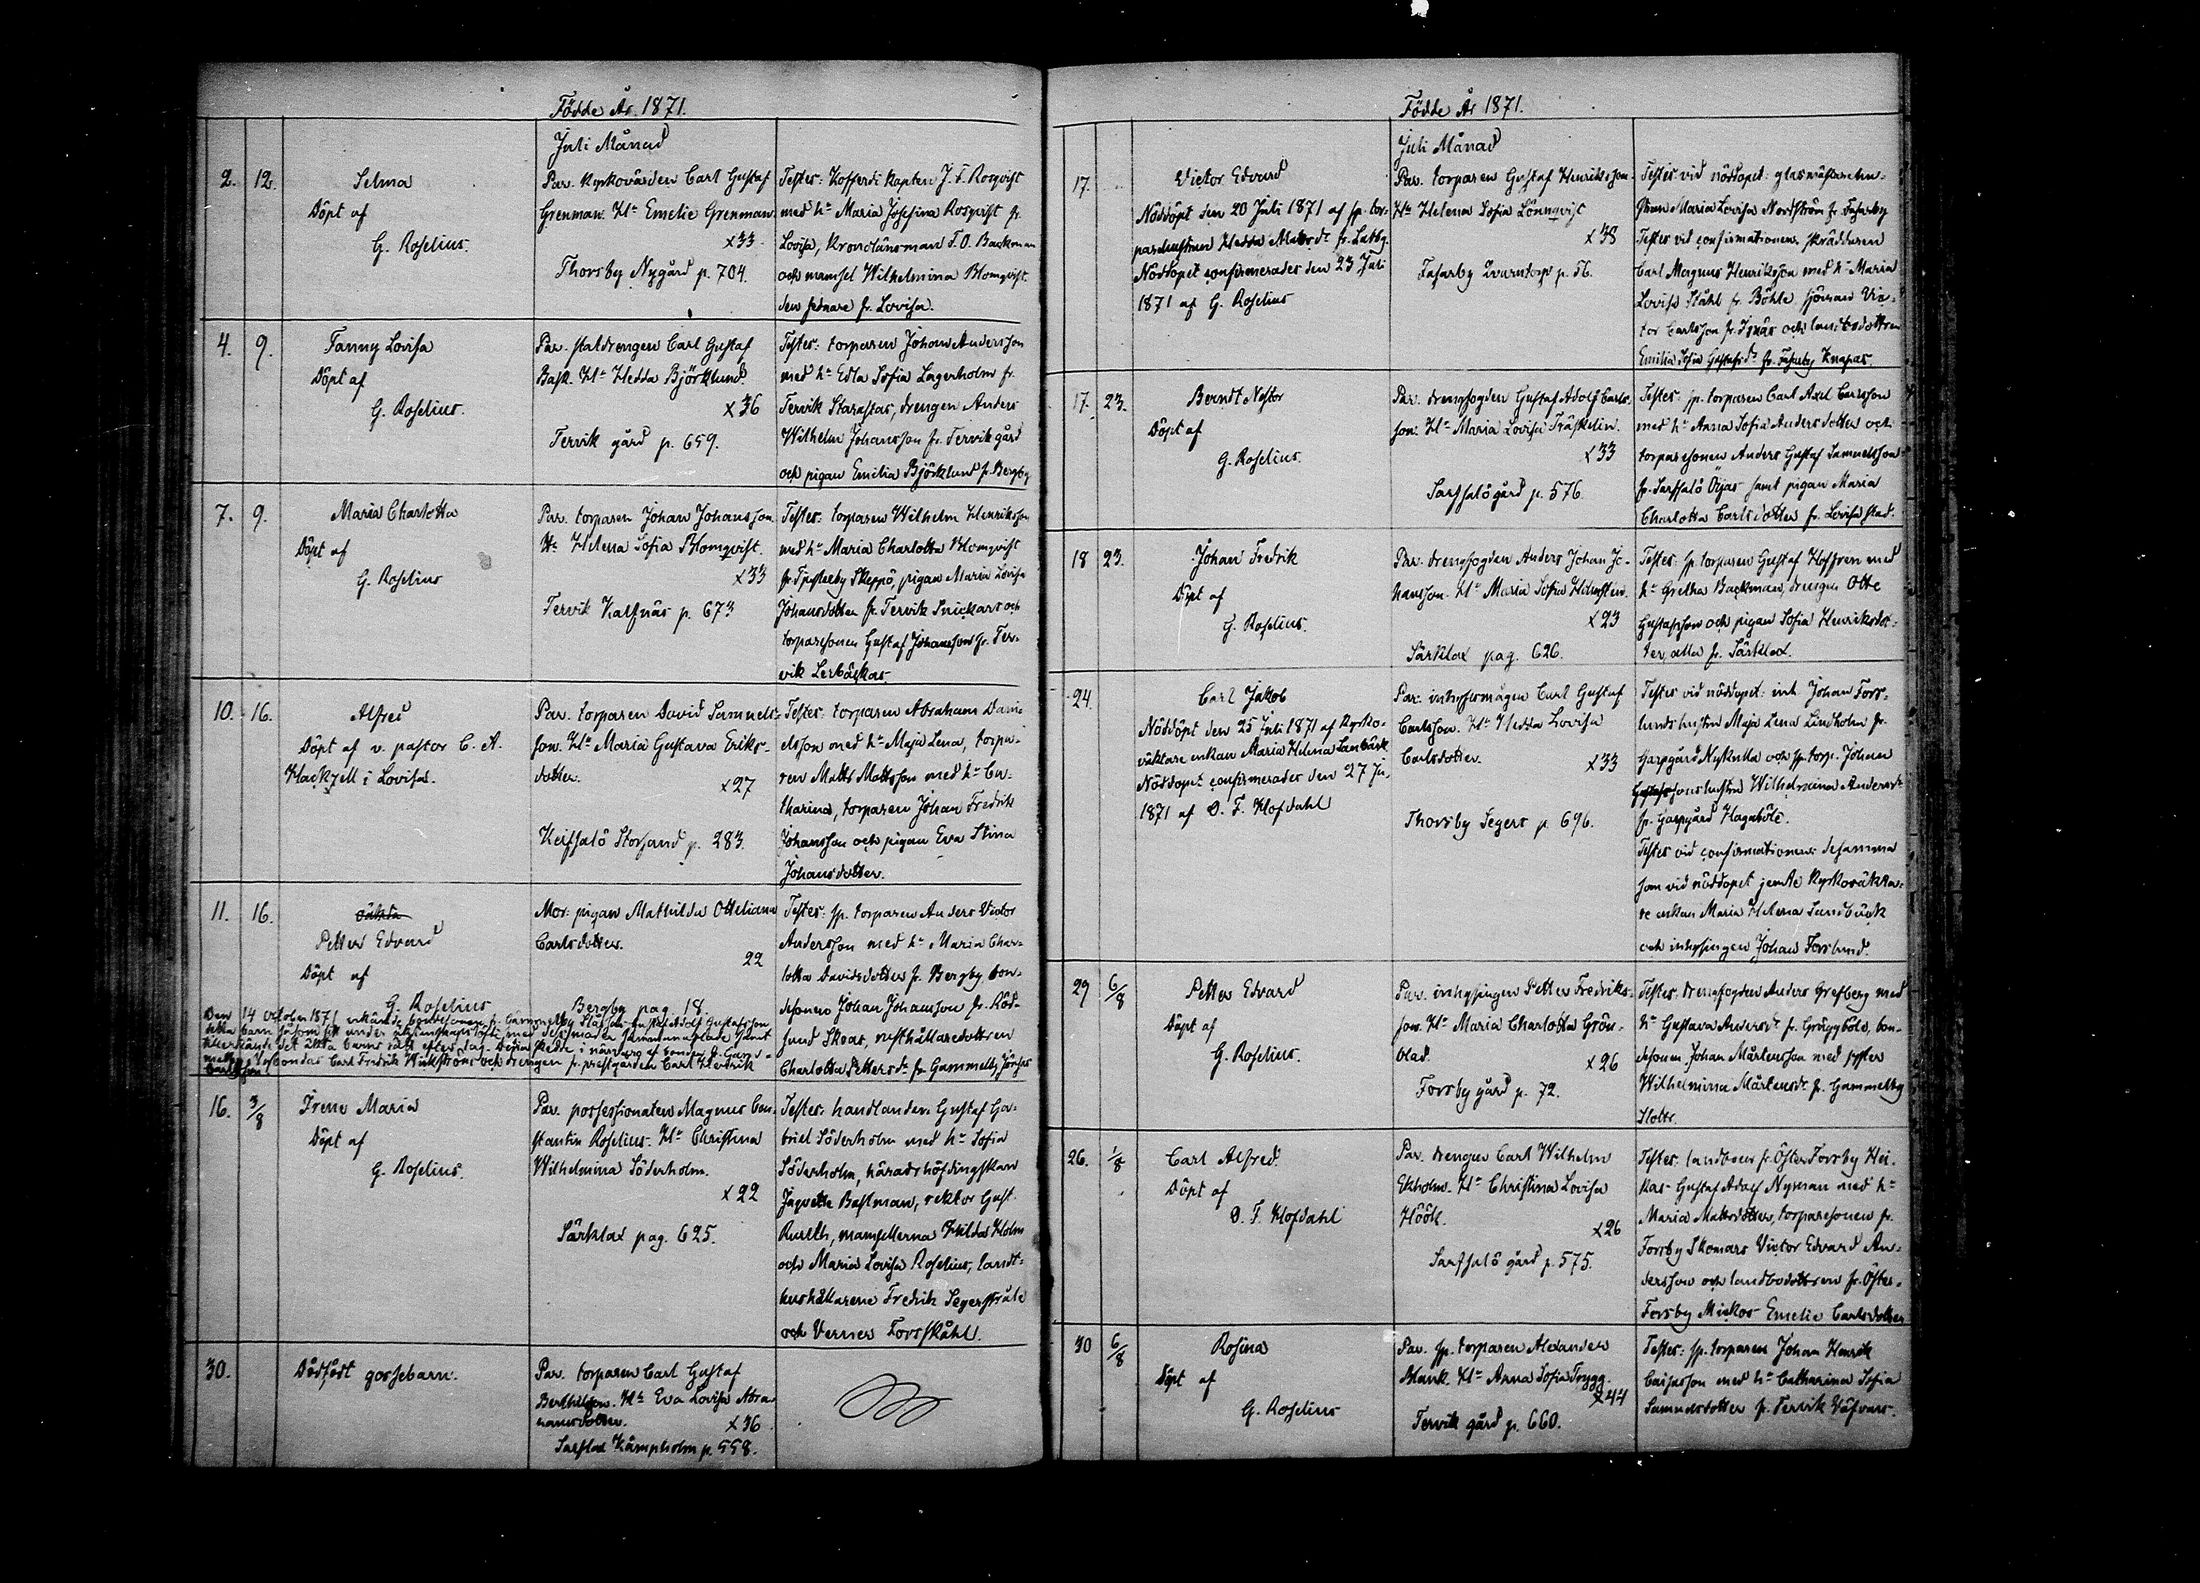 Födde År 1871.
Juli Månad
2. 12. Selma
Döpt af
G. Roselius.
Par. Kyrkovärden Carl Gustaf
Grenman. Hu Emelie Grenman
x33.
Thorsby Nygård p. 704.
Testes: Kofferdi Kapten J. F. Rosqvist
med hu Maria Josefina Rosqvist fr.
Lovisa, Kronolänsman F. O. Backman
och mamsel Wilhelmina Blomqvist
den senare fr. Lovisa.
4. 9. Fanny Lovisa
Döpt af
G. Roselius.
Par. staldrengen Carl Gustaf
Bask. Hu Hedda Björklund.
x36
Tervik gård p. 659.
Testes: torparen Johan Andersson
med hu Edla Sofia Lagerholm fr.
Tervik Starastas, drengen Anders
Wilhelm Johansson fr. Tervik gård
och pigan Emilia Björklund fr. Bergby
7. 9. Maria Charlotta
Döpt af
G. Roselius
Par. torparen Johan Johansson
Hu Helena Sofia Blomqvist.
x33
Tervik Kalfnäs p. 673
Testes: torparen Wilhelm Henriksson
med hu Maria Charlotta Blomqvist
fr. Skeppö, pigan Maria Lovisa
Johansdotter fr. Tervik Snickars och
torparesonen Gustaf Johansson fr. Ter-
vik Lerbäckas.
10. 16. Alfred
Döpt af v. pastor C. A.
Hackzell i Lovisa.
Par. torparen David Samuels-
son. Hu Maria Gustava Eriks-
dotter.
x27
Keifsalö Storsand p. 283.
Testes: torparen Abraham Dani-
elsson med hu Maja Lena, torpa-
ren Matts Mattsson med hu Ca-
tharina, torparen Johan Fredrik
Johansson och pigan Eva Stina
Johansdotter.
11. 16. oäkta
Petter Edvard
Döpt af
G. Roselius
Mor: pigan Mathilda Otteliana
Carlsdotter.
22
Bergby pag. 18.
Testes: sp. torparen Anders Victor
Andersson med hu Maria Char-
lotta Davidsdotter fr. Bergby, bon-
desonen Johan Johansson fr. Röd-
sund Skeas, rusthållaredottren
Charlotta Pettersdr fr. Gammelby
Den 14 October 1871 erkände bondesonen fr. Gammelby Gustaf Adolf Gustafsson
detta barn såsom sitt under äktenskapslöfte med dess moder sammanaflade samt
tillerkände det äkta barns rätt efter sig. Detta skedde i närvaro af bonden fr. Gam-
melby Carl Fredrik Wickström och drengen fr. prestgården Carl Hendrik
Carlsson.
16. 3/8 Irene Maria
Döpt af
G. Roselius.
Par. possessionaten Magnus Con-
stantin Roselius. Hu Christina
Wilhelmina Söderholm.
x22
Särklax pag. 625.
Testes: handlanden Gustaf Ga-
briel Söderholm med hu Sofia
Söderholm, häradshöfdingskan
Jaquette Bastman, rektor Gust.
Rurlth, mamsellerna Hilda Holm
och Maria Lovisa Roselius, landt-
hushållarene Fredrik Segerstråle
och Verner Forsskåhl.
30. Dödfödt gossebarn.
Par. torparen Carl Gustaf
Berthilsson. Hu Eva Lovisa Abra-
hamsdotter.
x36.
Sarflax Kämpholm p. 558.
Födde År 1871.
Juli Månad
17. Victor Edvard
Nöddöpt den 20 Juli 1871 af sp. tor-
parehustrun Hedda Mattsdr fr. Latby.
Nöddopet confirmerades den 23 Juli
1871 af G. Roselius
Par. torparen Gustaf Henriksson.
Hu Helena Sofia Lönnqvist
x38
Fasarby Qvarntorp p. 56.
Testes vid nöddopet: glasmästarehu-
strun Maria Lovisa Nordström fr. Fasarby
Testes vid confirmationen: skräddaren
Carl Magnus Henriksson med hu Maria
Lovisa Ståhl fr. Böhle, sjöman Vic-
tor Carlsson fr. Isnäs och landbodottren
Emilia Sofia Gustafsdr fr. Fasarby Knapas.
17. 23. Berndt Nestor
Döpt af
G. Roselius.
Par. drengfogden Gustaf Adolf Carls-
son. Hu Maria Lovisa Träskelin.
x33
Sarfsalö gård p. 576.
Testes: sp. torparen Carl Axel Carlsson
med hu Anna Sofia Andersdotter och
torparesonen Anders Gustaf Samuelsson
fr. Sarfsalö Öijas samt pigan Maria
Charlotta Carlsdotter fr. Lovisa stad.
18 23. Johan Fredrik
Döpt af
G. Roselius.
Par. drengfogden Anders Johan Jo-
hansson. Hu Maria Sofia Holmstén.
x23
Särklax pag. 626.
Testes: sp. torparen Gustaf Hoffrén med
hu Gretha Backman, drengen Otto
Gustafsson och pigan Sofia Henriksdot-
ter, alla fr. Särklax.
24. Carl Jakob
Nöddöpt den 25 Juli 1871 af kyrko-
väktare enkan Maria Helena Sandbäck.
Nöddopet confirmerades den 27 Ju.
1871 af O. F. Hofdahl
Par. inhysesmågen Carl Gustaf
Carlsson. Hu Hedda Lovisa
Carlsdotter.
x33
Thorsby Segers p. 696.
Testes vid nöddopet: inh. Johan Fors-
lunds hustru Maja Lena Lindholm fr.
Garpgård Nykulla och sp. torp. Johan
Gustafssons hustru Wilhelmina Andersdr
fr. Garpgård Hagaböle.
Testes vid confirmationen: desamma
som vid nöddopet jemte Kyrkoväkta-
re enkan Maria Helena Sandbäck
och inhysingen Johan Forslund.
29 6/8 Petter Edvard
Döpt af
G. Roselius.
Par. inhysingen Petter Fredriks-
son. Hu Maria Charlotta Grön-
blad.
x26
Forsby gård p. 72.
Testes: drengfogden Anders Grefberg med
hu Gustava Andersdr fr. Gräggböle, bon-
desonen Johan Mårtensson med syster
Wilhelmina Mårtensdr fr. Gammelby
Slotts.
26. 1/8 Carl Alfred.
Döpt af
O. F. Hofdahl
Par. drengen Carl Wilhelm
Ekholm. Hu Christina Lovisa
Höök.
x26
Sarfsalö gård p. 575.
Testes: landbon fr. Öster Forsby Hei-
kas Gustaf Adolf Nyman med hu
Maria Mattsdotter, torparesonen fr.
Forsby Skomars Victor Edvard An-
dersson och landbodottren fr. Öster-
Forsby Mickos Emelie Carlsdotter
30 6/8 Rosina
Döpt af
G. Roselius
Par. sp. torparen Alexander
Blank. Hu Anna Sofia Trygg.
x44
Tervik gård p. 660.
Testes: sp. torparen Johan Henrik
Caisasson med hu Catharina Sofia
Samuelsdotter fr. Tervik Väfvars.